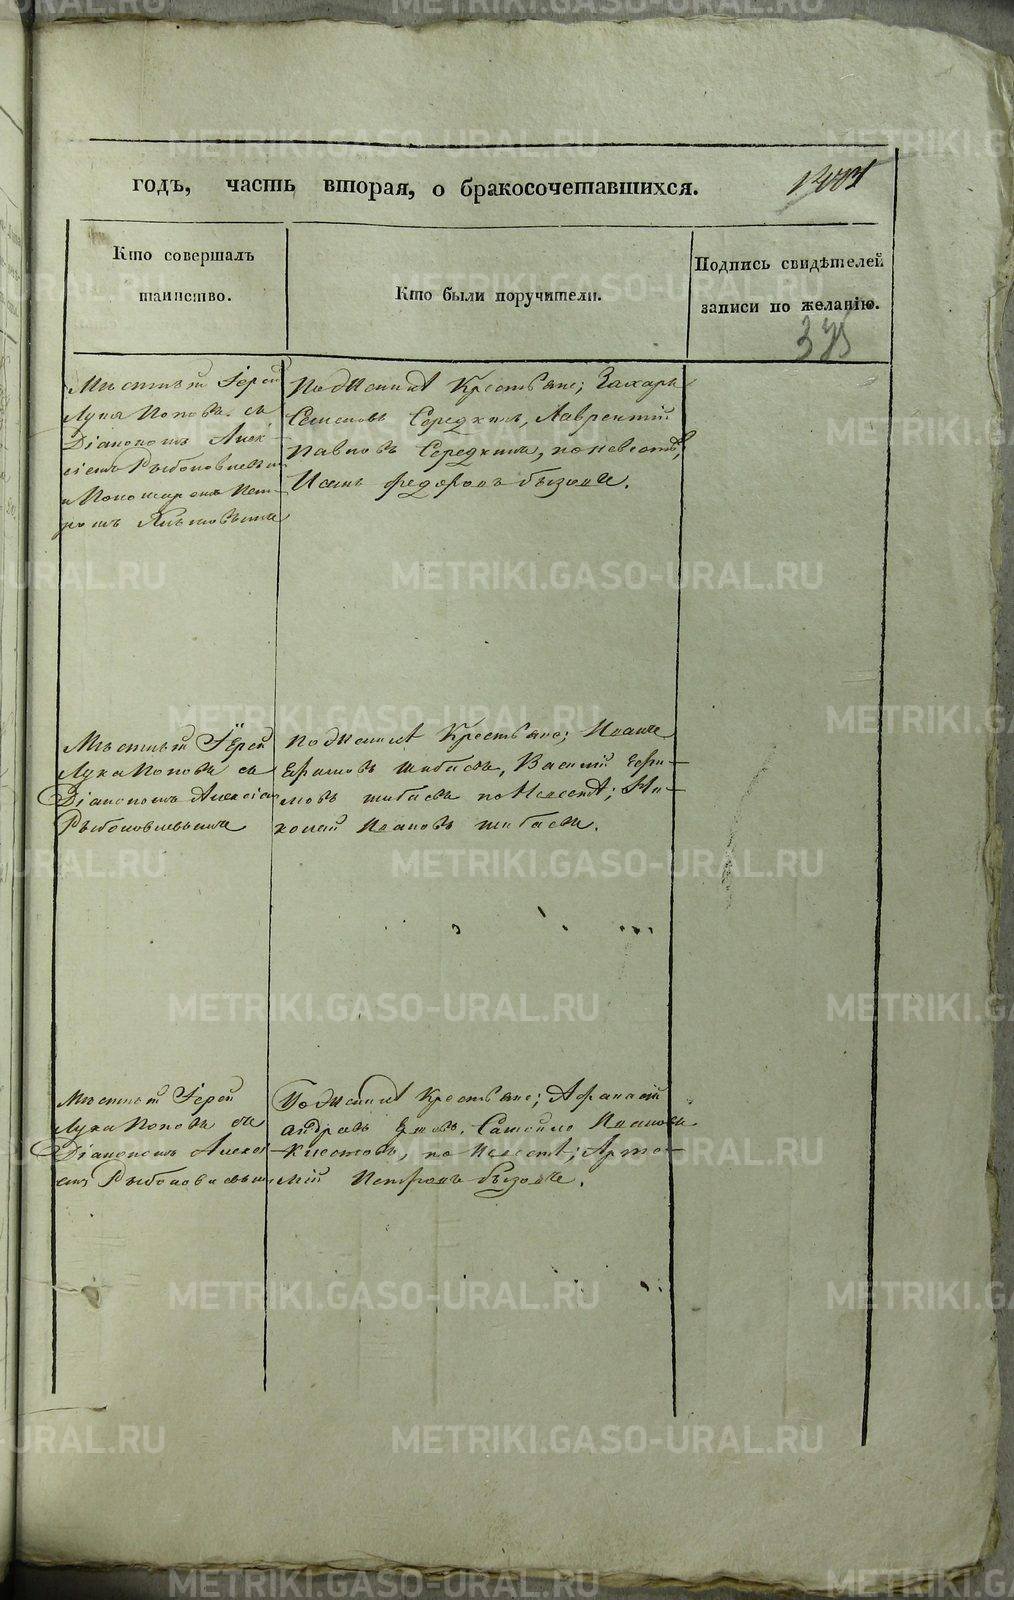 годъ, часть вторая, о бракосочетавшихся.
Кто совершалъ
таинство.
Кто были поручители.
Подпись свидѣтелей
записи по желанію.
375
Мѣстный Іерей
Лука Поповъ съ
Діакономъ Алек-
сіемъ Рыболовлевымъ
и Пономаремъ Пет-
ромъ
По женихѣ Крестьяне; Захаръ
Семеновъ Середкинъ, Лаврентій
Павловъ Середкинъ, по невестѣ,
Федоровъ Бызовъ.
Мѣстный Іерей
Лука Поповъ съ
Діакономъ Алексіем
Рыболовлевымъ
По женихѣ Крестьяне; Иванъ
Ефимовъ Шибаевъ, Василій Ефи-
мовъ Шибаевъ по Невестѣ; Ни-
колай Ивановъ Шибаевъ.
Мѣстный Іерей
Лука Поповъ съ
Діакономъ Алексі
емъ Рыболовлевым
По женихѣ Крестьяне; Афанасій
Самойло Ивановъ
по Невестѣ; Арте-
мій Петровъ Бызовъ.
METRIKI.GASO-URAL.RU